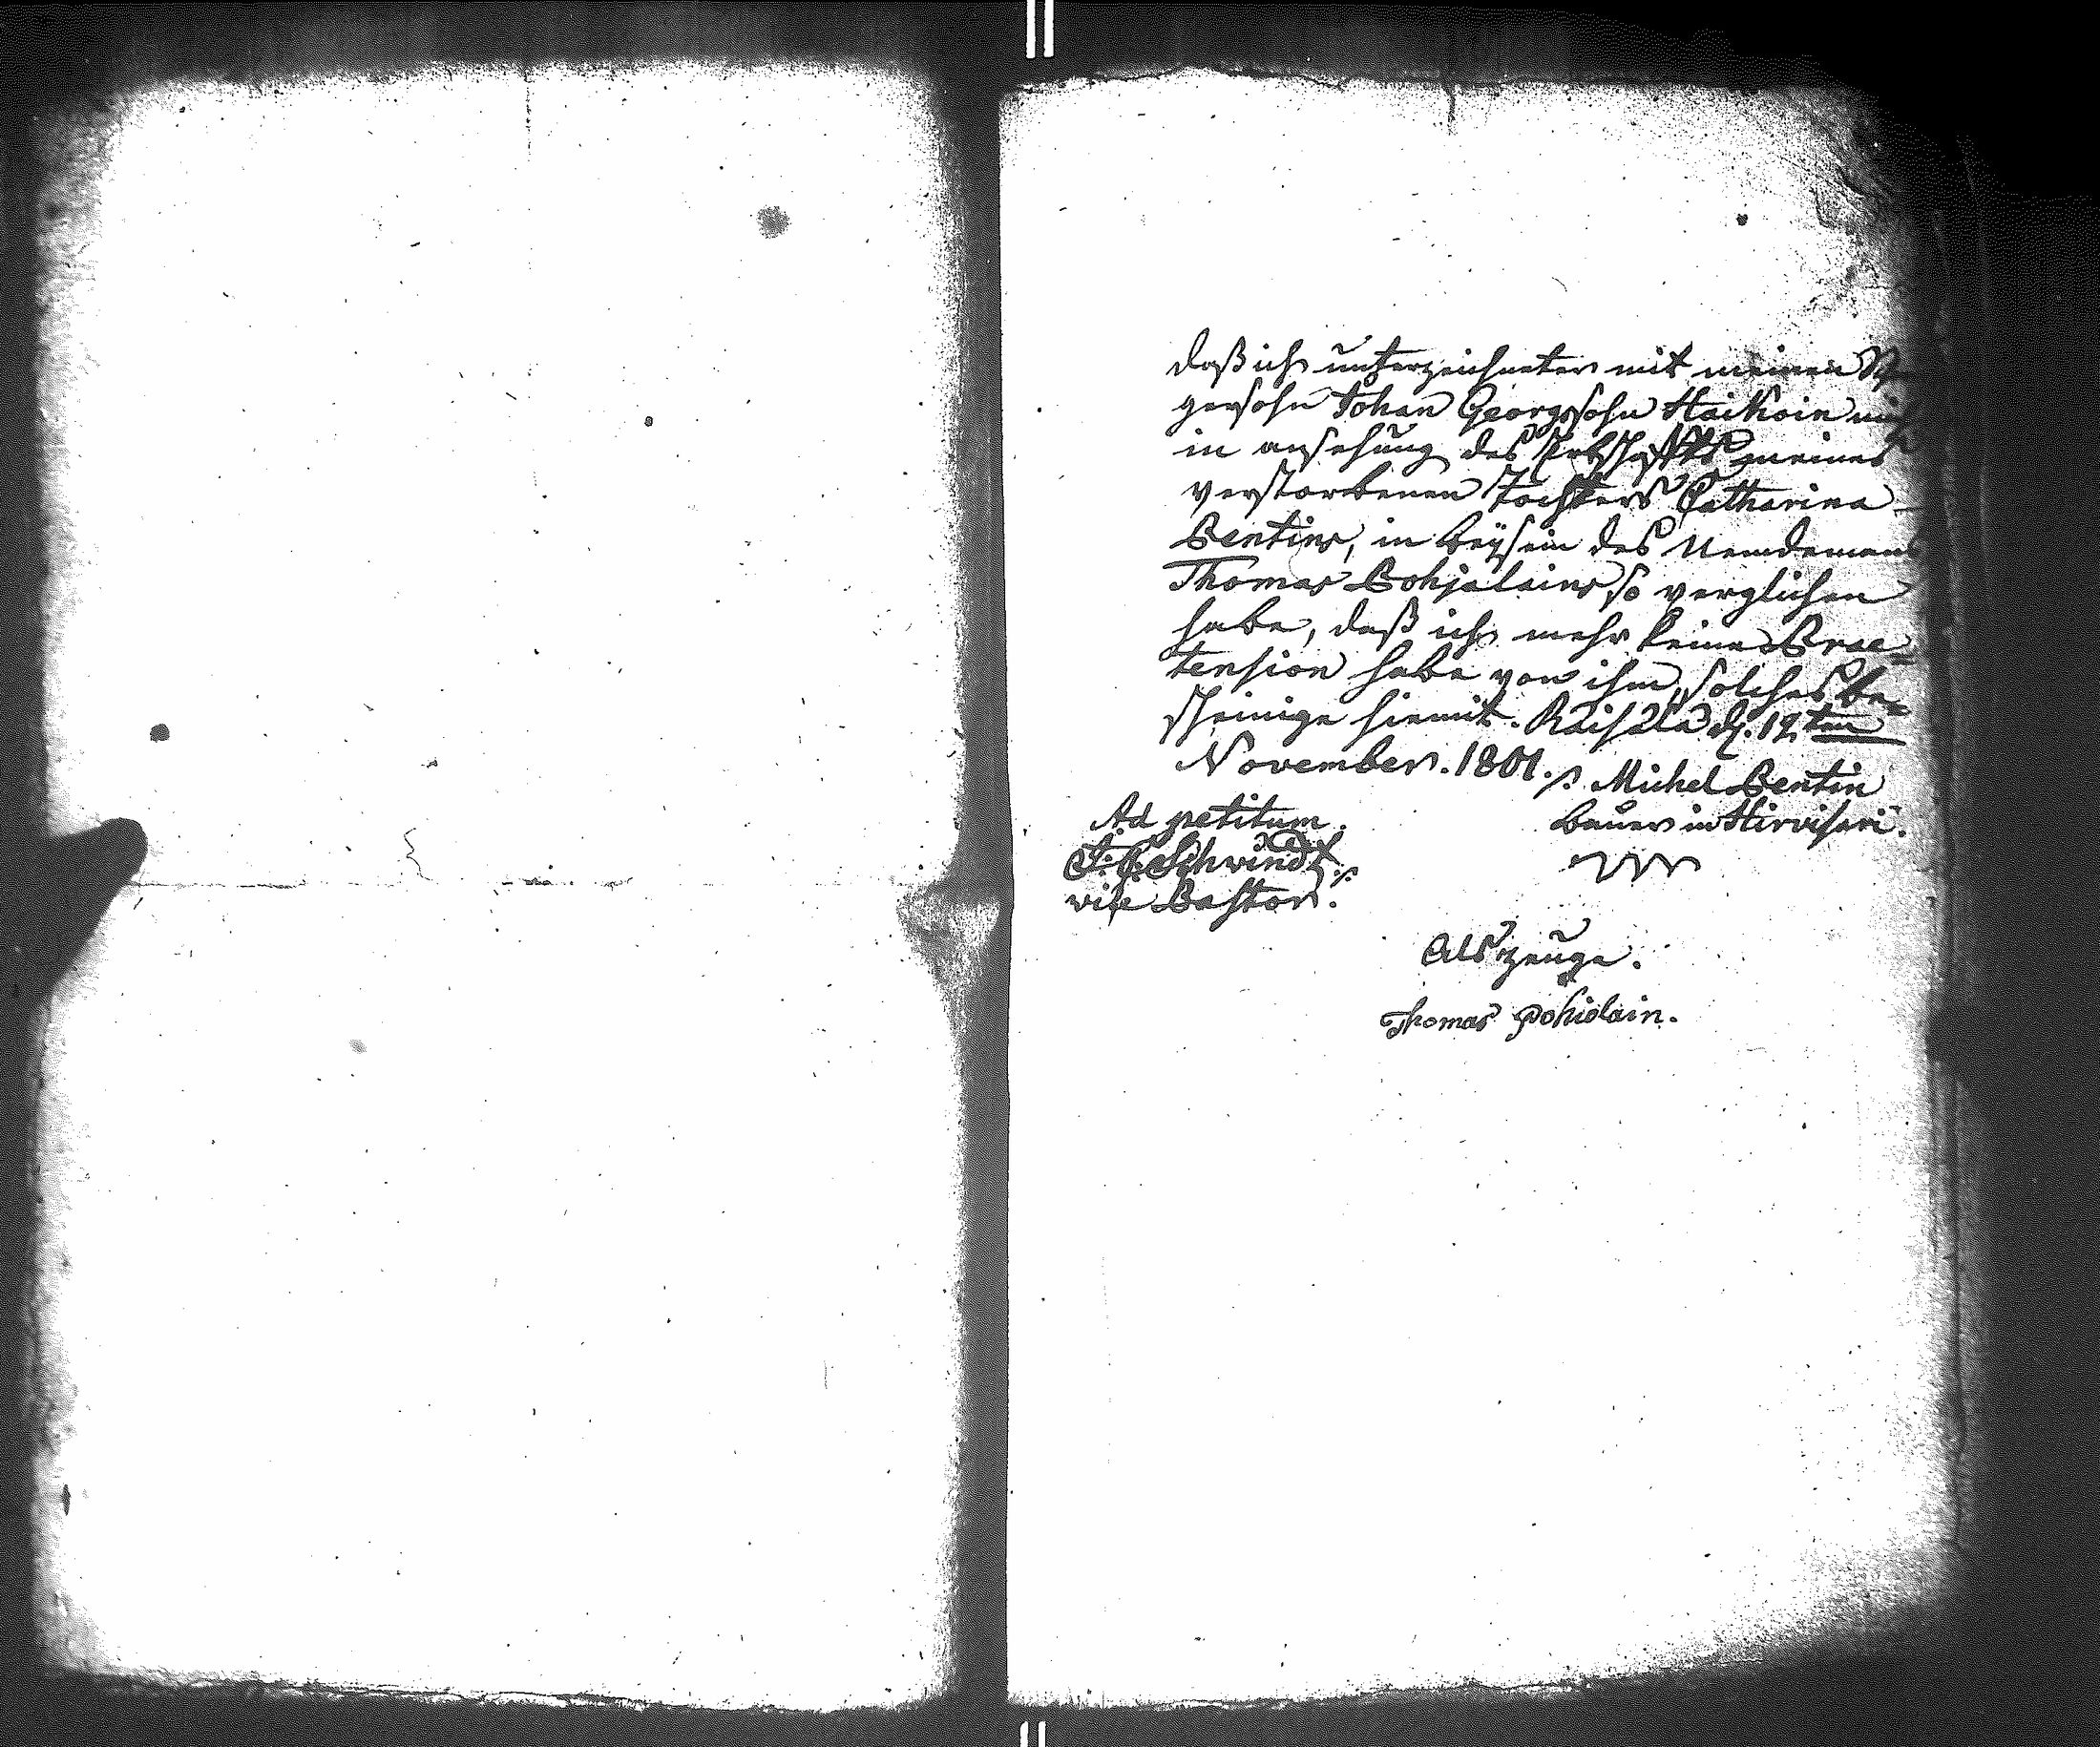 daß ich unterzeichneter mit meinen
gersohn Johan Georgssohn Haikoin mich
in ansehung des Erbschaffts meines
verstorbenen Tochters Catharina
Bentins, in beÿsein des
Thomas Pohjalains so verglichen
habe, daß ich mehr keine Prae=
tension habe von ihm, solches be=
scheinige hiemit. Räisälä d. 19.ten
November. 1801. Michel Bentin
Ad petitum. bauer in Hirvisari.
Schvindt
vice Pastor.
Als zeuge.
Thomas Pohiolain.